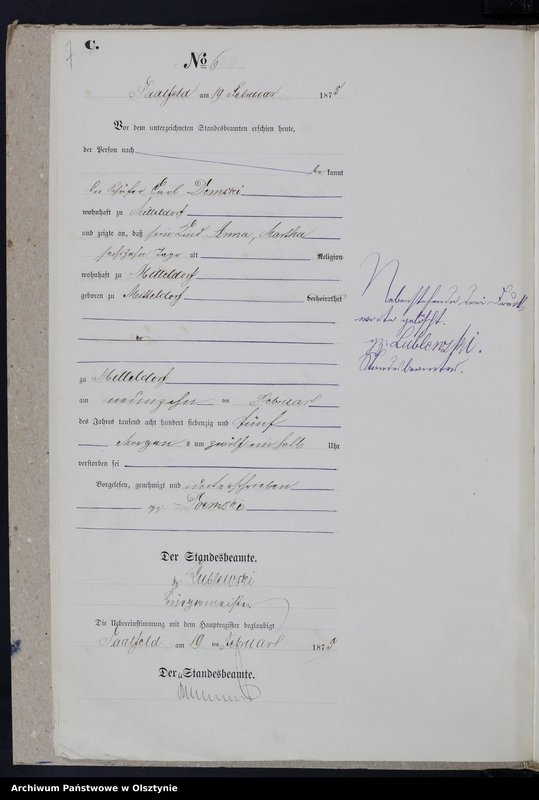 7
C.
No 6
Saalfeld am 19 Februar 1875
Vor dem unterzeichneten Standesbeamten erschien heute,
der Person nach
be kannt
der Schäfer Carl Demski
wohnhaft zu Mitteldorf
und zeigte an, daß sein Kind Anna, Martha
sechszehn Tage alt Religion
wohnhaft zu Mitteldorf
geboren zu Mitteldorf verheirathet
zu Mitteldorf
am neunzehn ten Februar
des Jahres tausend acht hundert siebenzig und fünf
Morgens um zwölf ein halb Uhr
verstorben sei
Vorgelesen, genehmigt und unterschrieben
gz. Demski
Der Standesbeamte.
gz. Lublewski
Bürgermeister
Die Uebereinstimmung mit dem Hauptregister beglaubigt
Saalfeld am 19 ten Februar 1875
Der Standesbeamte.
Nebenstehende drei Druck-
worte gelöscht.
gz. Lublewski.
Standesbeamter.
Archiwum Państwowe w Olsztynie